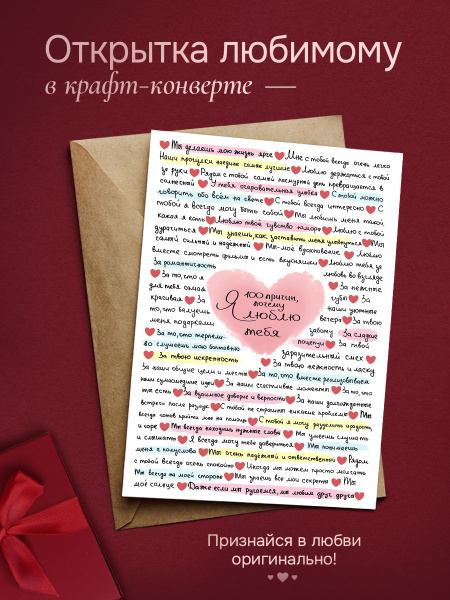 Открытка любимому
в крафт-конверте —
Ты делаешь мою жизнь ярче Мне с тобой всегда очень легко
Наши прогулки наедине самые лучшие Люблю держаться с тобой
за руки Рядом с тобой самый пасмурный день превращается в
солнечный У тебя очаровательная улыбка С тобой можно
говорить обо всём на свете С тобой всегда интересно С
тобой я всегда могу быть собой Ты любишь меня такой,
какая я есть Люблю твоё чувство юмора Люблю с тобой
дурачиться Ты знаешь, как заставить меня улыбнуться Ты
самый сильный и надёжный Ты-моё вдохновение Люблю
вместе смотреть фильмы и есть вкусняшки Люблю тебя за
За романтичность любовь во взгляде
За то, что я За нежные
для тебя самая губы За
красивая За наши уютные
то, что балуешь вечера За твою
меня подарками заботу За сладкие
За то, что терпели- поцелуи За твой
во слушаешь мою болтовню заразительный смех
За твою искренность За твою нежность и ласку
100 причин,
почему
Я люблю
тебя
За наши общие цели и мечты За то, что вместе реализовываем
наши сумасшедшие идеи За наши счастливые моменты За то, что
ты есть За взаимное доверие и верность За наши долгожданные
встречи после разлуки С тобой не страшны никакие проблемы Ты
всегда готов прийти мне на помощь С тобой я могу разделить и радость,
и горе Ты всегда находишь нужные слова Ты умеешь слушать
и слышать Я всегда могу тебе довериться Ты понимаешь
меня с полуслова Ты очень надёжный и ответственный Рядом
с тобой всегда очень спокойно Иногда мы можем просто молчать
Ты всегда на моей стороне Ты знаешь все мои секреты Ты
моё солнце Даже если мы ругаемся, мы любим друг друга
Признайся в любви
оригинально!